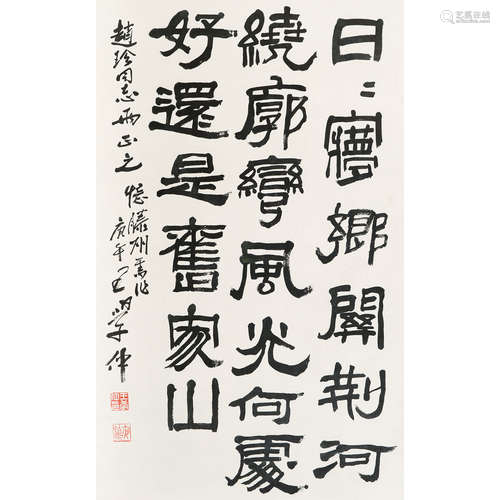 日〻㝱鄉關荊河
繞廓彎風光何處
好還是舊家山
趙珍同志兩正之
憶滕州舊作
庚午王學仲